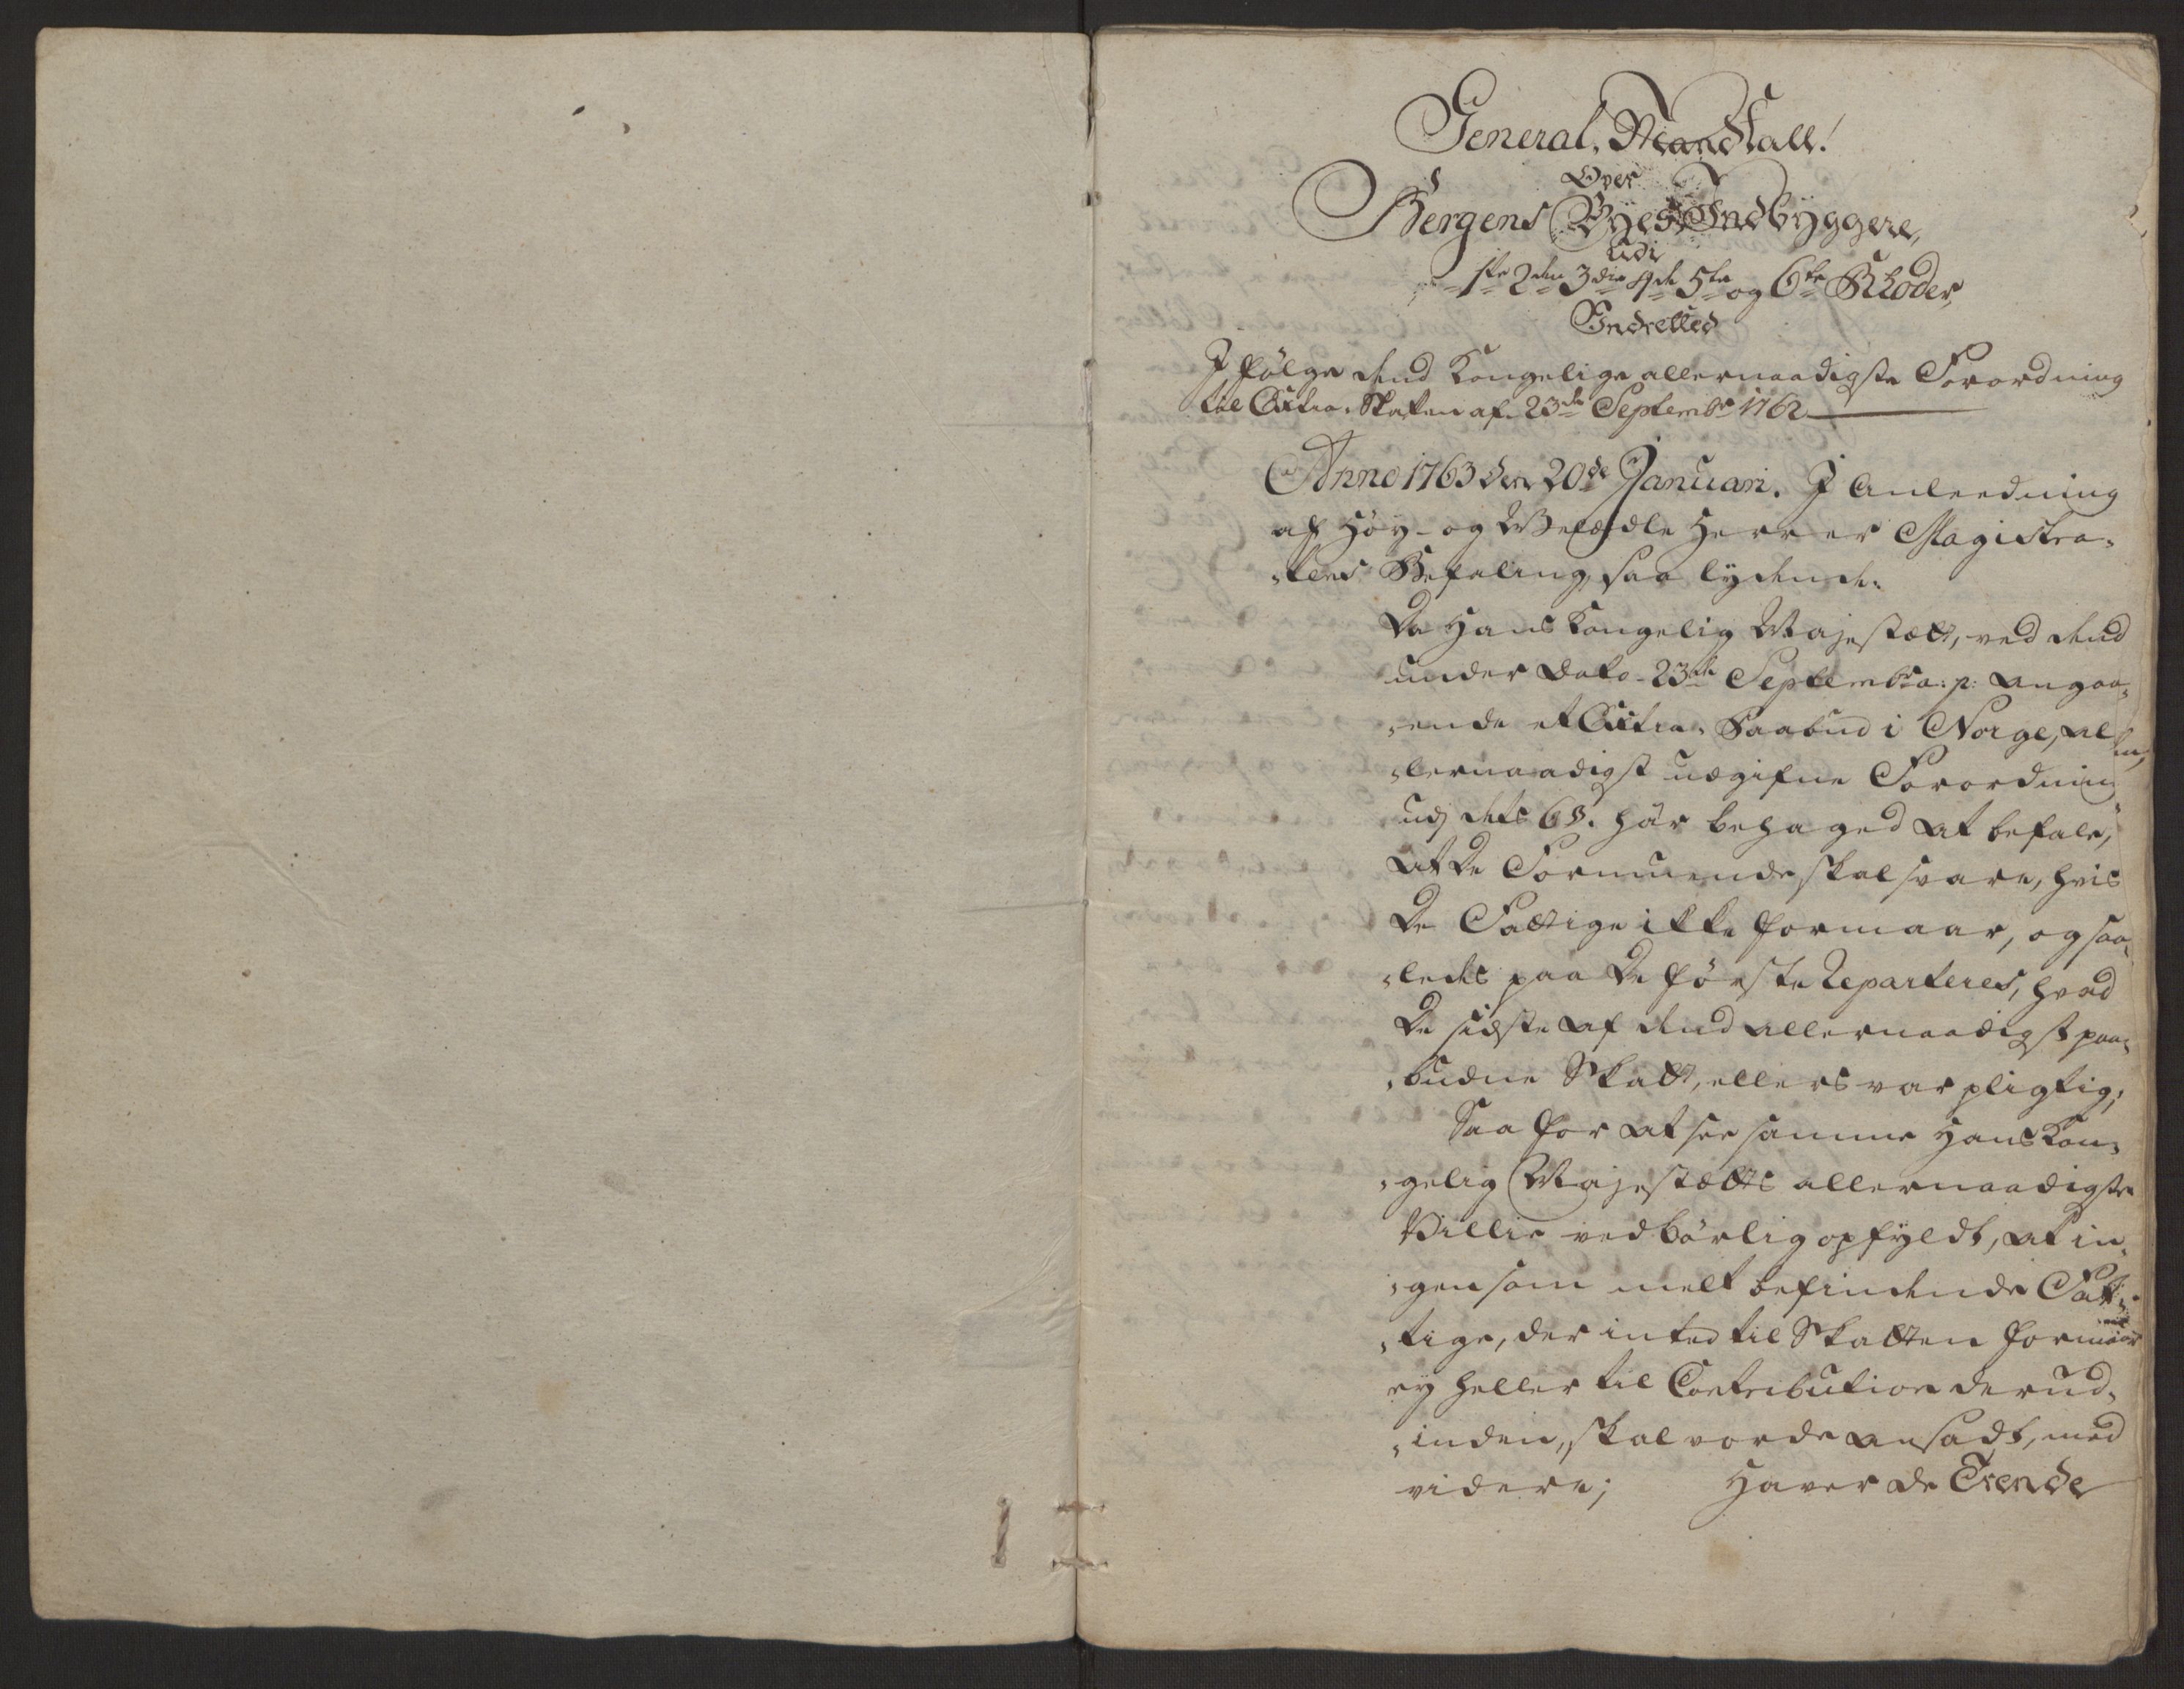 General, Mandtall!
Over
Bergens Byes Indbyggere,
Udi
1ste 2den 3die 4de 5te og 6te Rhoder,
Indretted
I følge dend Kongelige allernaadigste Forordning
til Extra-Skatten af 23de Septembr 1762
Anno 1763 den 20de Januari. I Anleedning
af Høy- og Velædle Herrer Magistra-
-tens Befaling, saa lydende:
Da Hans Kongelig Majestætt, ved dend
under Dato 23de Septembr a: p: angaa-
-ende et Extra-Paabud i Norge, al-
-lernaadigst udgifne Forordning
udj dets 6 §. hâr behaged at befale,
at De Formuende skal svare, hvis
De Fattige ikke formaar, og saa-
-ledes paa De første Reparteres, hvad
De sidste af dend allernaadigst paa-
-budne Skatt, ellers var pligtig;
Saa for at see samme Hans Kon-
-gelig Majestætts allernaadigste
Villie vedbørlig opfyldt, at in-
-gen som melt befindende Fat-
-tige, der inted til Skatten formaar
ey heller til Contribution derud-
-inden, skal vorde ansadt, med
videre; Haver De Trende